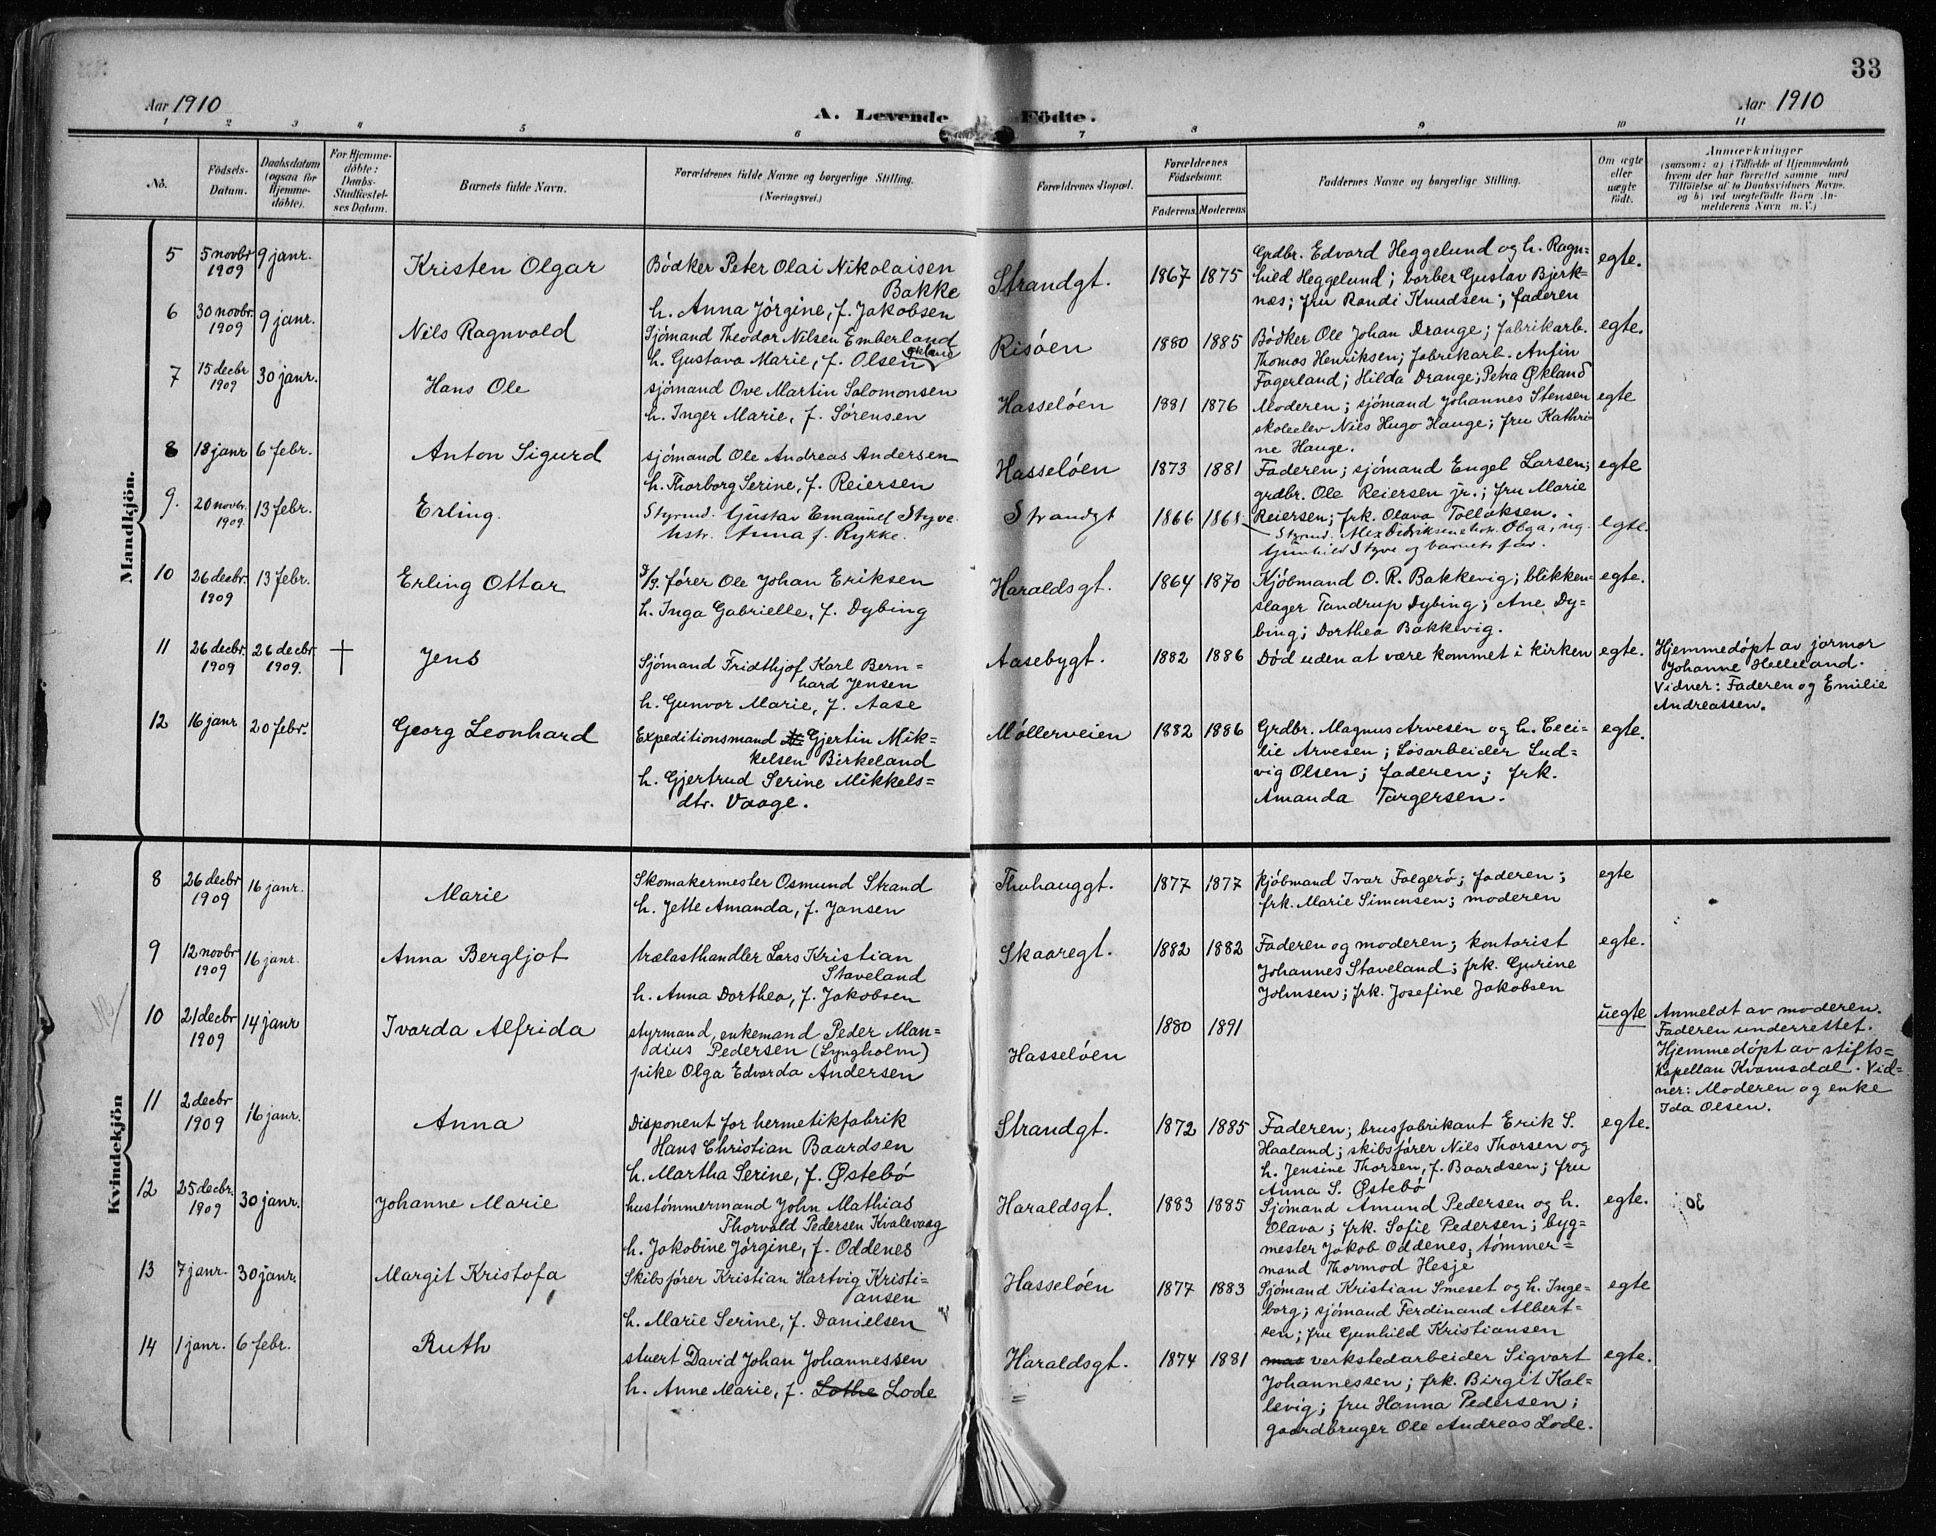 33
Aar 1910
A. Levende Födte.
Aar 1910
1 2 3 4 5 6 7 8 9 10 11
No.
Födsels-
Datum.
Daabsdatum
(ogsaa for
Hjemme-
döbte).
For Hjemme-
döbte:
Daabs-
Stadfæstel-
ses Datum.
Barnets fulde Navn.
Forældrenes fulde Navne og borgerlige Stilling.
(Næringsvei.)
Forældrenes Bopæl.
Forældrenes
Födselsaar.
Faderens. Moderens.
Faddernes Navne og borgerlige Stilling.
Om ægte
eller
uægte
födt.
Anmærkninger
(saasom: a) i Tilfælde af Hjemmedaab
hvem der har forrettet samme med
Tilföielse af to Daabsvidners Navne.
og b) ved uægtefödte Börn An-
melderens Navn m. V.)
Mandkjön.
5
5 novbr
1909
9 janr.
Kristen Olgar
Bödker Peter Olai Nikolaisen
Bakke
h. Anna Jörgine, f. Jakobsen
Strandgt.
1867 1875
Grdbr. Edvard Heggelund og h. Ragn=
hild Heggelund; barber Gustav Bjerk=
næs; fru Randi Knudsen; faderen
egte.
6
30 novbr.
1909
9 janr.
Nils Ragnvald
Sjömand Theodor Nilsen Emberland
h. Gustava Marie, f. Olsen Økland
Risöen
1880 1885
Bödker Ole Johan Drange; fabrikarb.
Thomas Henriksen; fabrikarb. Anfin
Fagerland; Hilda Drange; Petra Økland
egte.
7
15 decbr
1909
30 janr.
Hans Ole
sjömand Ove Martin Salomonsen
h. Inger Marie, f. Sørensen
Hasselöen
1881 1876
Moderen; sjömand Johannes Stensen
skoleelev Nils Hugo Hauge; fru Kathri
ne Hauge.
egte
8
18 janr
6 febr.
Anton Sigurd
sjömand Ole Andreas Andersen
h. Thorborg Serine, f. Reiersen
Hasselöen
1873 1881
Faderen; sjömand Engel Larsen;
grdbr. Ole Reiersen jr.; fru Marie
Reiersen; frk. Olava Tollaksen.
egte
9.
20 novbr.
1909.
13 febr.
Erling.
Styrmd. Gustav Emanuel Styve.
hstr. Anna f. Rykke.
Strandgt
1866 1868
Styrmd. Alex Didriksen = hstr. Olga, ug.
Gunhild Styve og barnets far.
egte.
10
26 decbr.
1909
13 febr.
Erling Ottar
fører Ole Johan Eriksen
h. Inga Gabrielle, f. Dybing
Haraldsgt.
1864 1870
Kjöbmand O. R. Bakkevig; blikken=
slager Tandrup Dybing; Ane Dy=
bing; Dorthea Bakkevig.
egte.
11
26 decbr.
1909
26 decbr.
1909.
†
Jens
Sjömand Fridthjof Karl Bern=
hard Jensen
h. Gunvor Marie, f. Aase
Aasebygt.
1882 1886
Död uden at være kommet i kirken
egte.
Hjemmedöpt av jormor
Johanne Helleland.
Vidner: Faderen og Emilie
Andreassen.
12
16 janr
20 febr.
Georg Leonhard
Expeditionsmand Gjertin Mik=
kelsen Birkeland
h. Gjertrud Serine Mikkels=
dtr. Vaage.
Møllerveien
1882 1886
Grdbr. Magnus Arvesen og h. Ceci=
lie Arvesen; Løsarbeider Lud=
vig Olsen; faderen; frk.
Amanda Torgersen.
egte.
Kvindekjön
8
26 decbr
1909
16 janr.
Marie
Skomakermester Osmund Strand
h. Jette Amanda, f. Jansen
Thuhauggt.
1877 1877
kjöbmand Ivar Falgerö; faderen;
frk. Marie Simonsen; moderen
egte
9
12 novbr
1909
16 janr.
Anna Bergljot
trælasthandler Lars Kristian
Staveland
h. Anna Dorthea, f. Jakobsen
Skaaregt.
1882 1882
Faderen og moderen; kontorist
Johannes Staveland; frk. Gurine
Johnsen; frk. Josefine Jakobsen
egte.
10
21 decbr
1909
14 janr
Ivarda Alfrida
styrmand, enkemand Peder Man=
dius Pedersen (Lyngholm)
pike Olga Edvarda Andersen
Hasselöen
1880 1891
uegte
Anmeldt av moderen.
Faderen underrettet.
Hjemmedöpt av stifts=
kapellan Kvamsdal. Vid=
ner: Moderen og enke
Ida Olsen.
11
2 decbr
1909
16 janr.
Anna
Disponent for hermetikfabrik
Hans Christian Baardsen
h. Martha Serine, f. Østebö
Strandgt.
1872 1885
Faderen; brusfabrikant Erik S.
Haaland; skibsfører Nils Thorsen og
h. Jensine Thorsen, f. Baardsen; fru
Anna S. Østebö
egte.
12
25 decbr.
1909
30 janr.
Johanne Marie
hustömmermand John Mathias
Thorvald Pedersen Kvalevaag
h. Jakobine Jörgine, f. Oddenes
Haraldsgt.
1883 1885
Sjömand Amund Pedersen og h.
Olava; frk. Sofie Pedersen; byg=
mester Jakob Oddenes, tömmer=
mand Thormod Hesje
egte.
13
7 janr.
30 janr.
Margit Kristofa
Skibsfører Kristian Hartvig Kristi=
ansen
h. Marie Serine, f. Danielsen
Hasselöen
1877 1883
Sjömand Kristian Smeset og h. Inge=
borg; sjömand Ferdinand Albert=
sen; fru Gunhild Kristiansen
egte
14
1 janr.
6 febr.
Ruth
stuert David Johan Johannessen
h. Anne Marie, f. Lothe Lode
Haraldsgt.
1874 1881
mas verkstedarbeider Sigvart
Johannessen; frk. Birgit Kal=
levig; fru Hanna Pedersen;
gaardbruger Ole Andreas Lode.
egte.